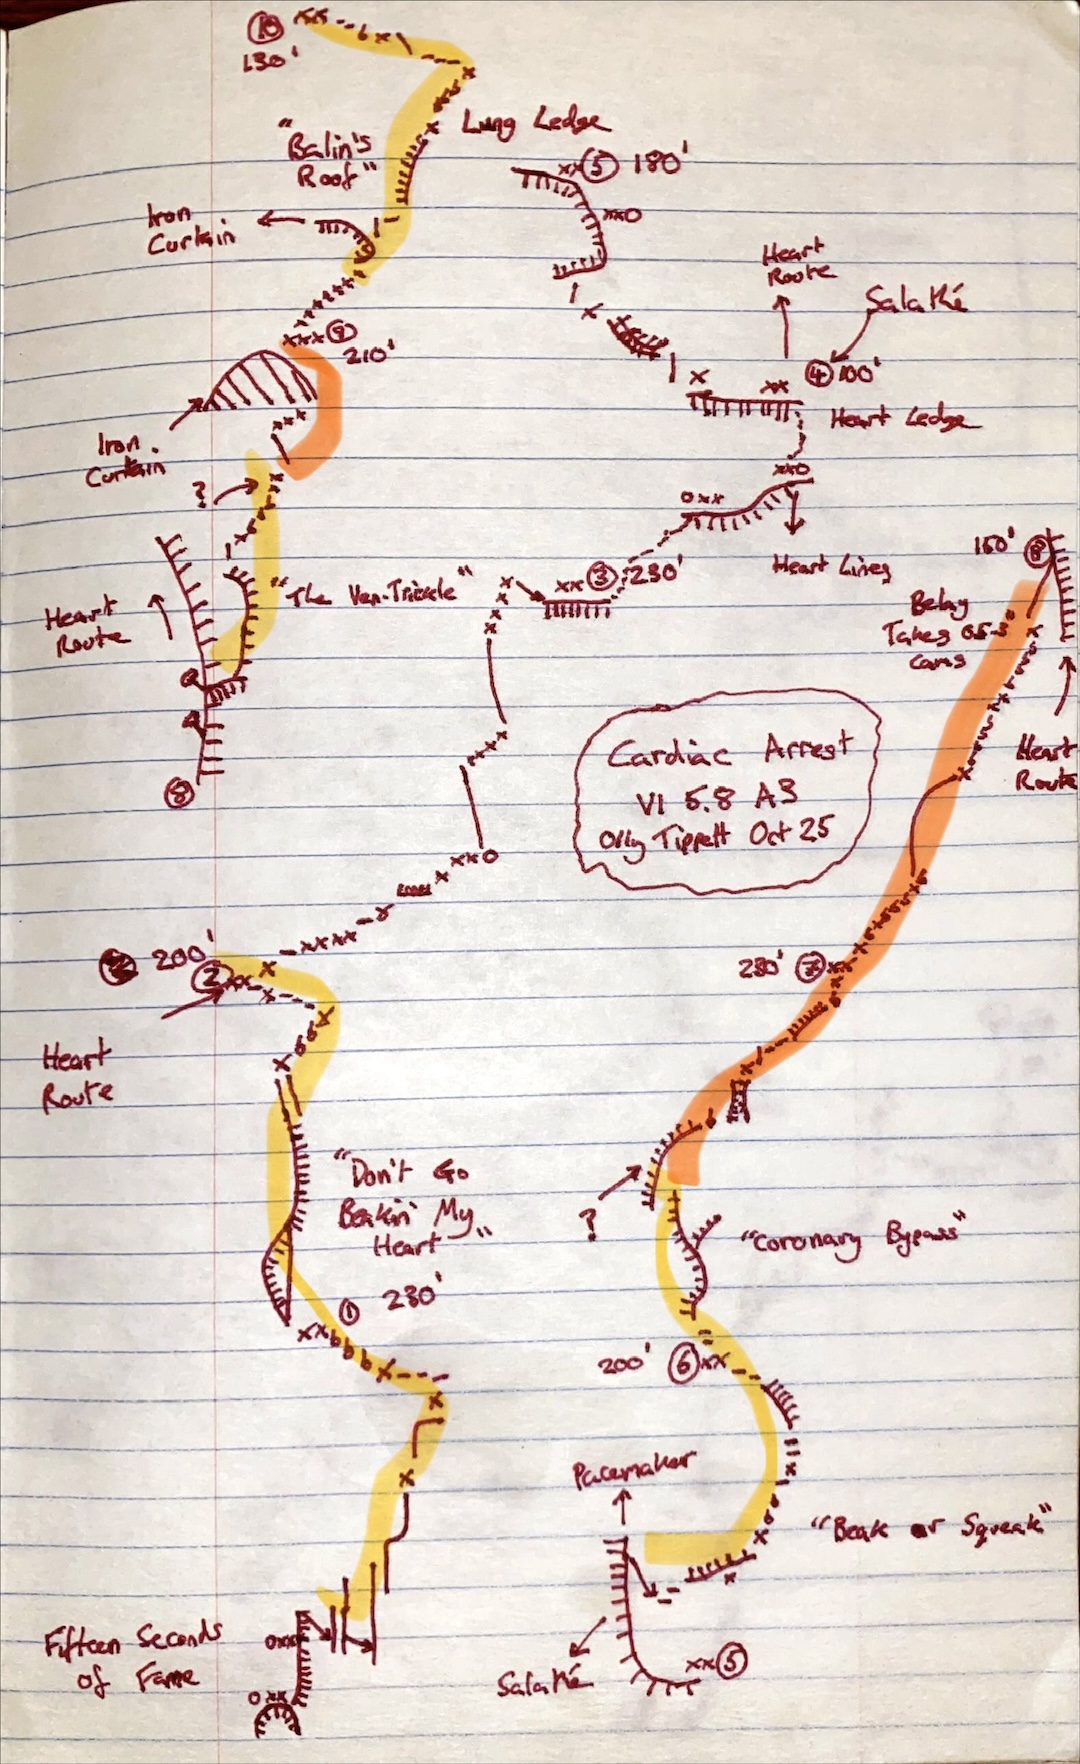 10
130'
Lung Ledge
"Balin's
Roof"
xx 5 180'
Iron
Curtain
Heart
Route
Salathé
9
210'
4 100'
Heart Ledge
Iron
Curtain
?
3 230'
Heart Lines
150' 8
"The Ven-Trickle"
Heart
Route
Belay
Takes 0.5-3"
cams
Heart
Route
8
Cardiac Arrest
VI 5.8 A3
Olly Tippett Oct 25
200'
2
230' 7
Heart
Route
"Don't Go
Beakin' My
Heart"
?
"Coronary Bypass"
1 230'
200' 6
Pacemaker
"Beak or Squeak"
Fifteen Seconds
of Fame
Salathé
5